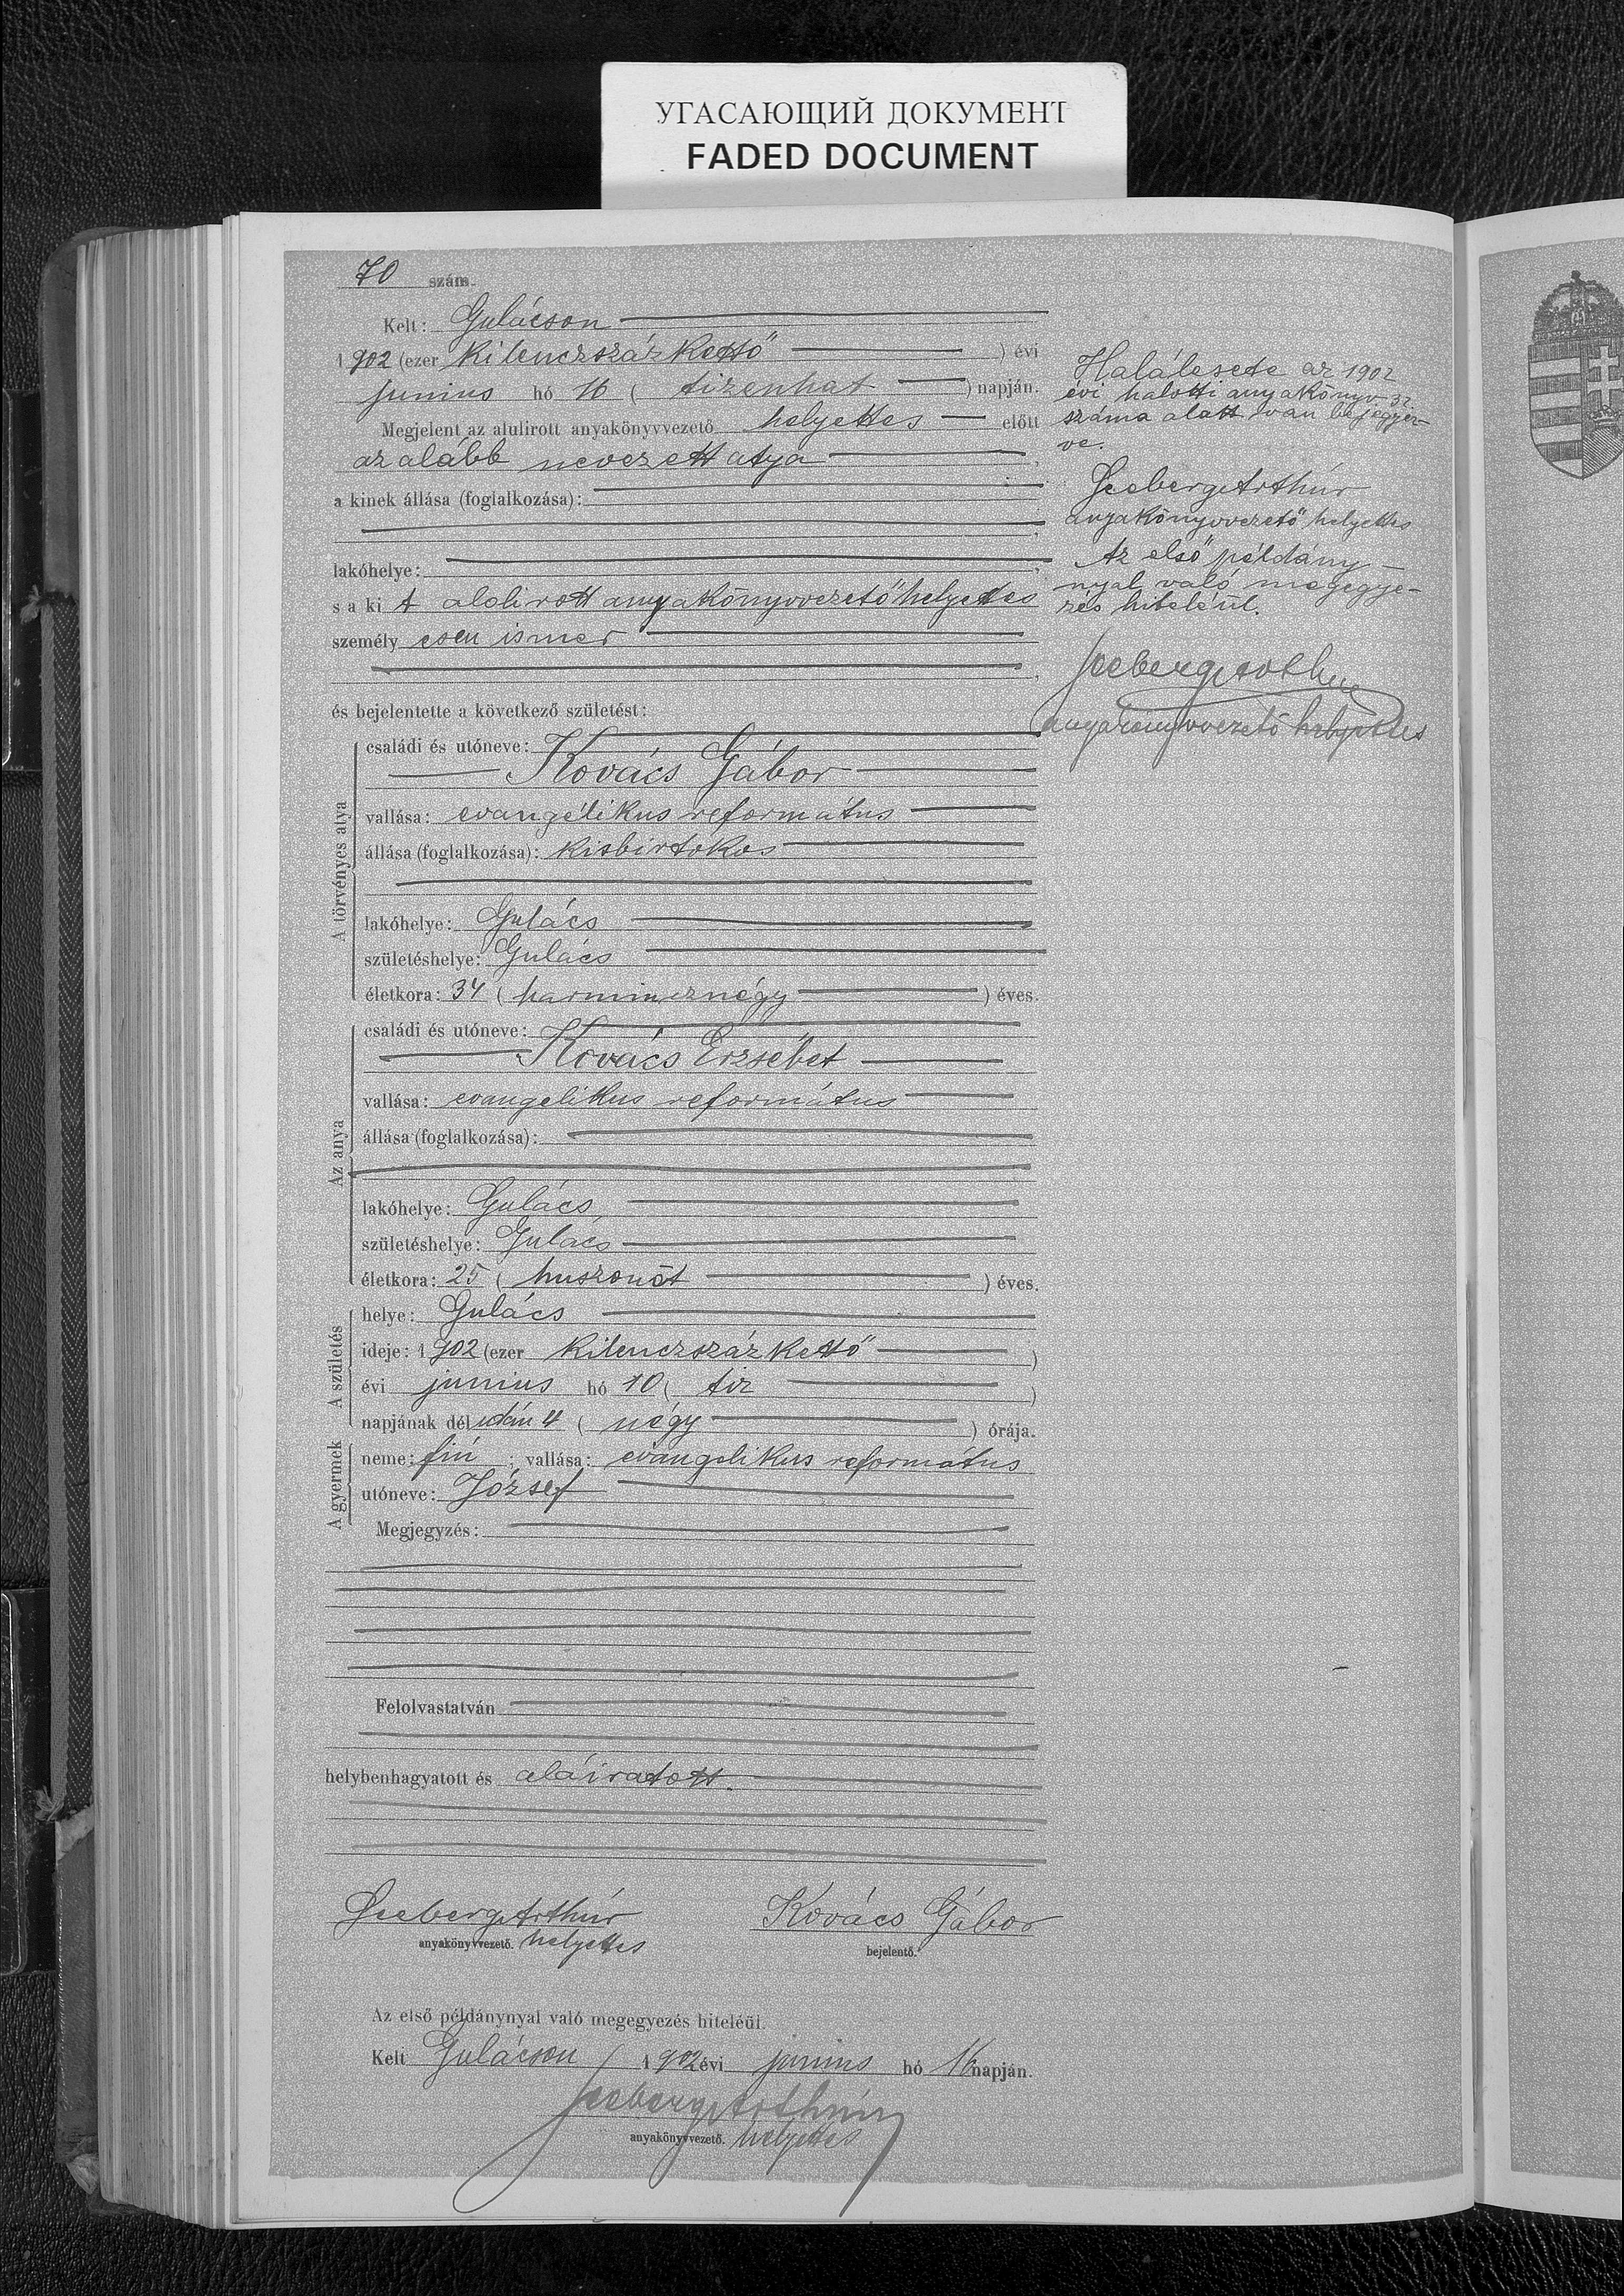 УГАСАЮЩИЙ ДОКУМЕНТ
FADED DOCUMENT
70 szám.
Kelt: Gulácson
1902 (ezer kilenczszázkettő) évi
junius hó 16 (tizenhat) napján.
Megjelent az alulirott anyakönyvvezető helyettes előtt
az alább nevezett atya,
a kinek állása (foglalkozása):
lakóhelye:
s a ki A alolirott anyakönyvvezető helyettes
személyesen ismer
és bejelentette a következő születést:
A törvényes atya
családi és utóneve:
Kovács Gábor
vallása: evangélikus református
állása (foglalkozása): kisbirtokos
lakóhelye: Gulács
születéshelye: Gulács
életkora: 34 (harmincznégy) éves.
Az anya
családi és utóneve:
Kovács Erzsébet
vallása: evangelikus református
állása (foglalkozása):
lakóhelye: Gulács
születéshelye: Gulács
életkora: 25 (huszonöt) éves.
A születés
helye: Gulács
ideje: 1902 (ezer kilenczszázkettő)
évi junius hó 10 (tiz)
napjának délután 4 (négy) órája.
A gyermek
neme: fiú; vallása: evangelikus református
utóneve: József
Megjegyzés:
Felolvastatván
helybenhagyatott és aláiratott.
Seeberg Arthúr
anyakönyvvezető. helyettes
Kovács Gábor
bejelentő.
Az első példánynyal való megegyezés hiteléül.
Kelt Gulácson 1902 évi junius hó 16 napján.
Seeberg Arthúr
anyakönyvvezető. helyettes
Halálesete az 1902
évi halotti anyakönyv 32
száma alatt van bejegyez-
ve.
Seeberg Arthúr
anyakönyvvezető helyettes
Az első példány-
nyal való megegye-
zés hiteléül.
Seeberg Arthur
anyakönyvvezető helyettes